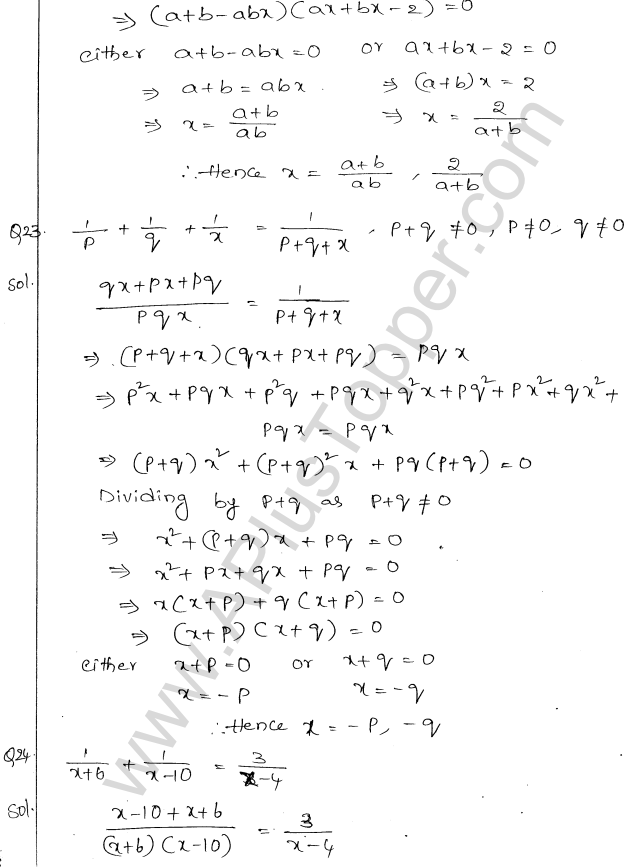 ⇒ (a+b-abx)(ax+bx-2)=0
either a+b-abx=0 or ax+bx-2=0
⇒ a+b = abx. ⇒ (a+b)x = 2
⇒ x = (a+b)/(ab) ⇒ x = 2/(a+b)
∴ Hence x = (a+b)/(ab), 2/(a+b)
Q23. 1/p + 1/q + 1/x = 1/(p+q+x), p+q ≠0, p≠0, q≠0
Sol. (qx+px+pq)/(pqx) = 1/(p+q+x)
⇒ (p+q+x)(qx+px+pq) = pqx
⇒ p²x + pqx + p²q + pqx + q²x + pq² + px² + qx² +
pqx = pqx
⇒ (p+q)x² + (p+q)²x + pq(p+q) = 0
Dividing by p+q as p+q ≠ 0
⇒ x² + (p+q)x + pq = 0
⇒ x² + px + qx + pq = 0
⇒ x(x+p) + q(x+p) = 0
⇒ (x+p)(x+q) = 0
either x+p=0 or x+q=0
x=-p x=-q
∴ Hence x = -p, -q
Q24. 1/(x+6) + 1/(x-10) = 3/(x-4)
Sol. (x-10+x+6)/((x+6)(x-10)) = 3/(x-4)
www.APlusTopper.com